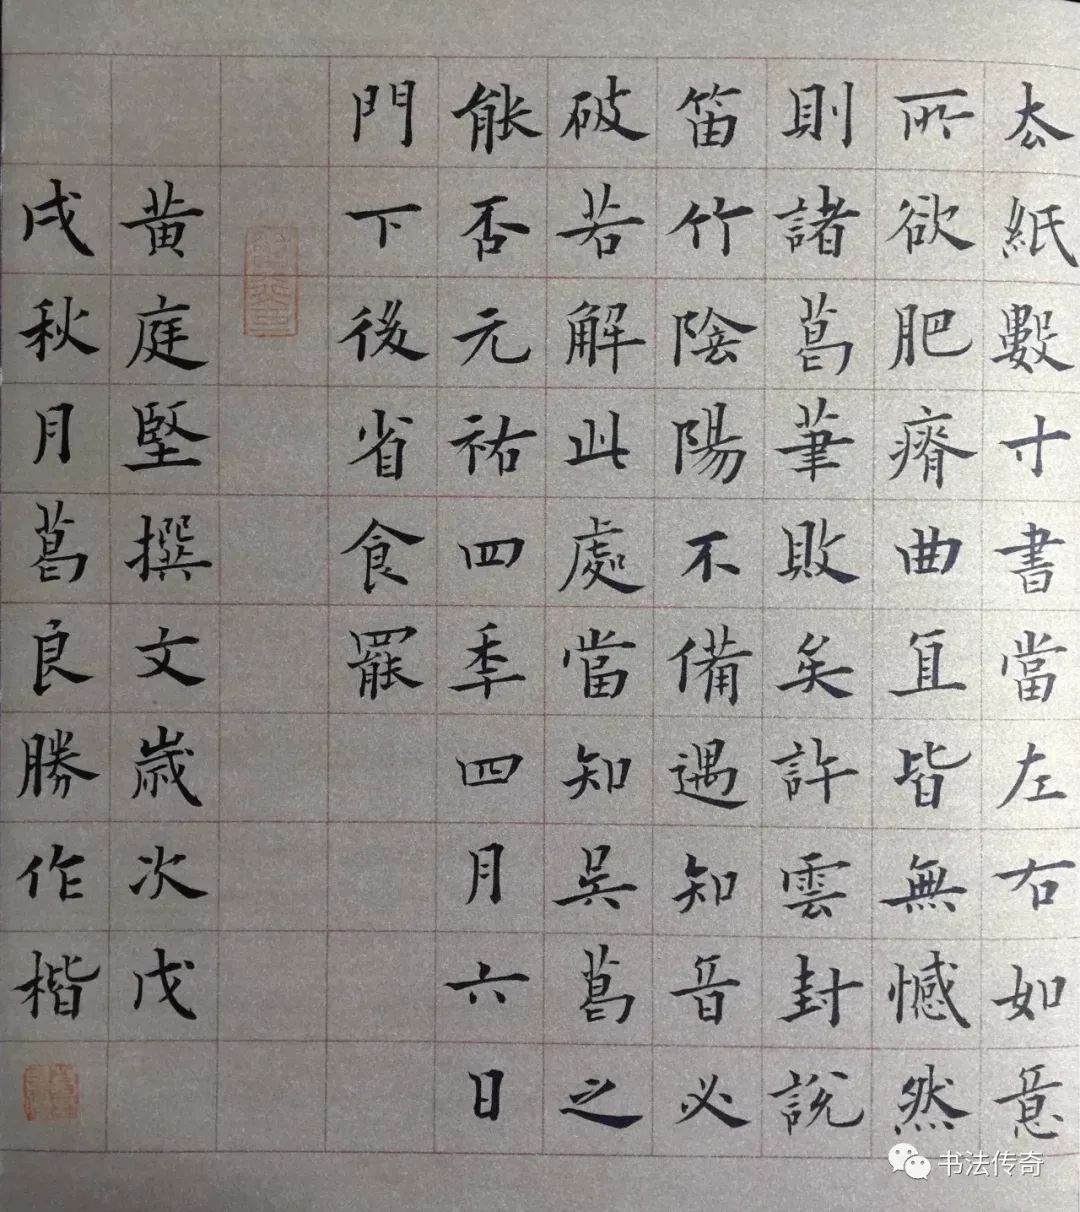 去紙數寸書當左右如意
所欲肥瘠曲直皆無憾然
則諸葛筆敗矣許雲封說
笛竹陰陽不備遇知音必
破若解此處當知吳葛之
能否元祐四秊四月六日
門下後省食罷
黃庭堅撰文歲次戊
戌秋月葛良勝作楷
书法传奇